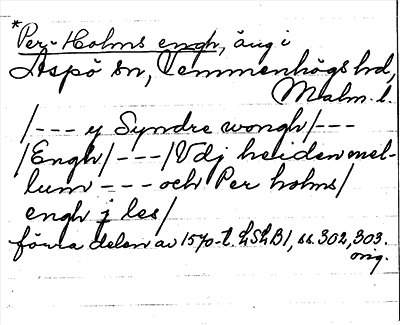 *Per-Holms engh, äng i
Aspö sn, Vemmenhögs hd,
Malm. l.
/--- y Syndre wongh/---
/Engh/---/Vdj heiden mel-
lum --- och Per holms/
engh j les/
förra delen av 1570-t. LSLB1, ss. 302, 303.
orig.